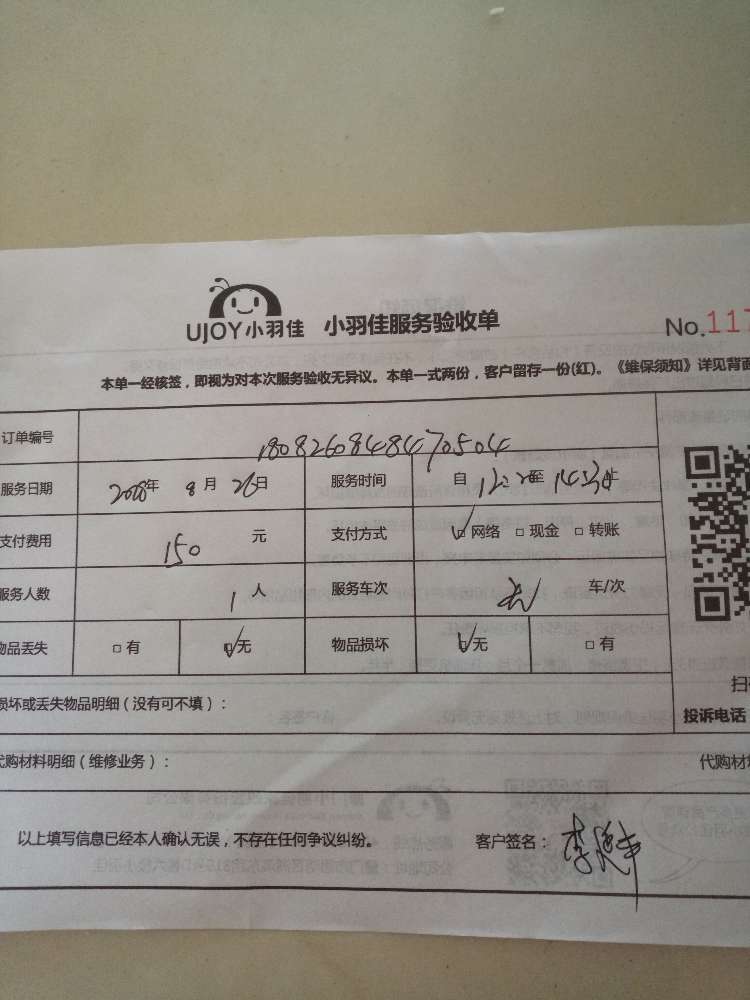 UJOY小羽佳 小羽佳服务验收单 No.117
本单一经核签，即视为对本次服务验收无异议。本单一式两份，客户留存一份(红)。《维保须知》详见背面
订单编号 1808260848470504
服务日期 2008年 8月 26日 服务时间 自 12:20至 14:30止
支付费用 150 元 支付方式 ☑网络 □现金 □转账
服务人数 1人 服务车次 车/次
物品丢失 □有 ☑无 物品损坏 ☑无 □有
损坏或丢失物品明细（没有可不填）：
扫
投诉电话
代购材料明细（维修业务）： 代购材
以上填写信息已经本人确认无误，不存在任何争议纠纷。 客户签名：李